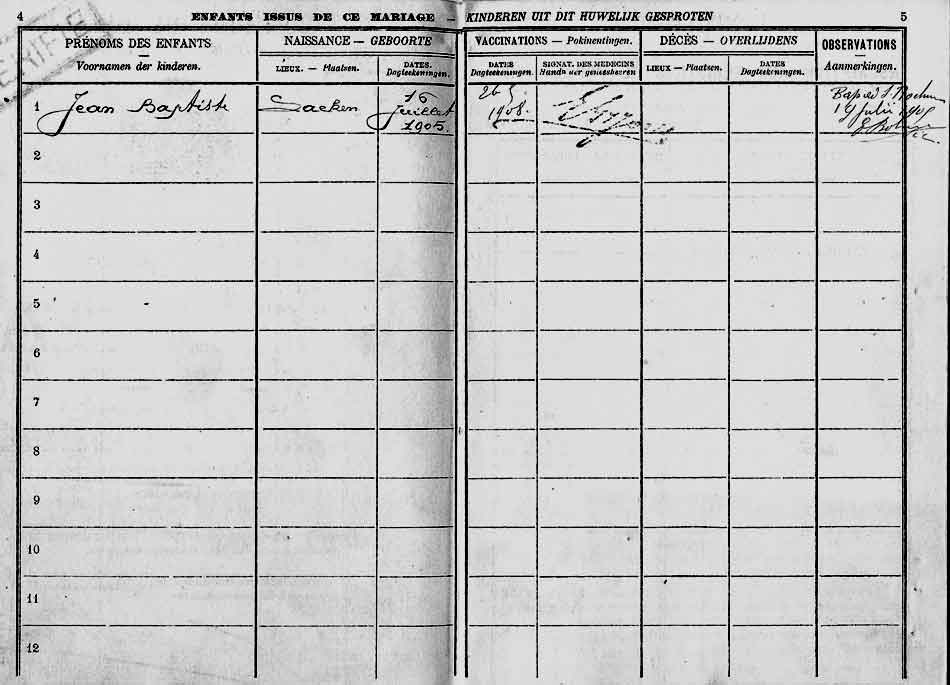 4
ENFANTS ISSUS DE CE MARIAGE — KINDEREN UIT DIT HUWELIJK GESPROTEN
5
PRÉNOMS DES ENFANTS
Voornamen der kinderen.
NAISSANCE — GEBOORTE
LIEUX. — Plaatsen.
DATES.
Dagteekeningen.
VACCINATIONS — Pokinentingen.
DATES
Dagteekeningen.
SIGNAT. DES MEDECINS
Handt der geneesheeren
DÉCÈS — OVERLIJDENS
LIEUX — Plaatsen.
DATES
Dagteekeningen.
OBSERVATIONS
Aanmerkingen.
1
Jean Baptiste
Laeken
16
Juillet
1905.
26
1908.
19 julii 1905
2
3
4
5
6
7
8
9
10
11
12